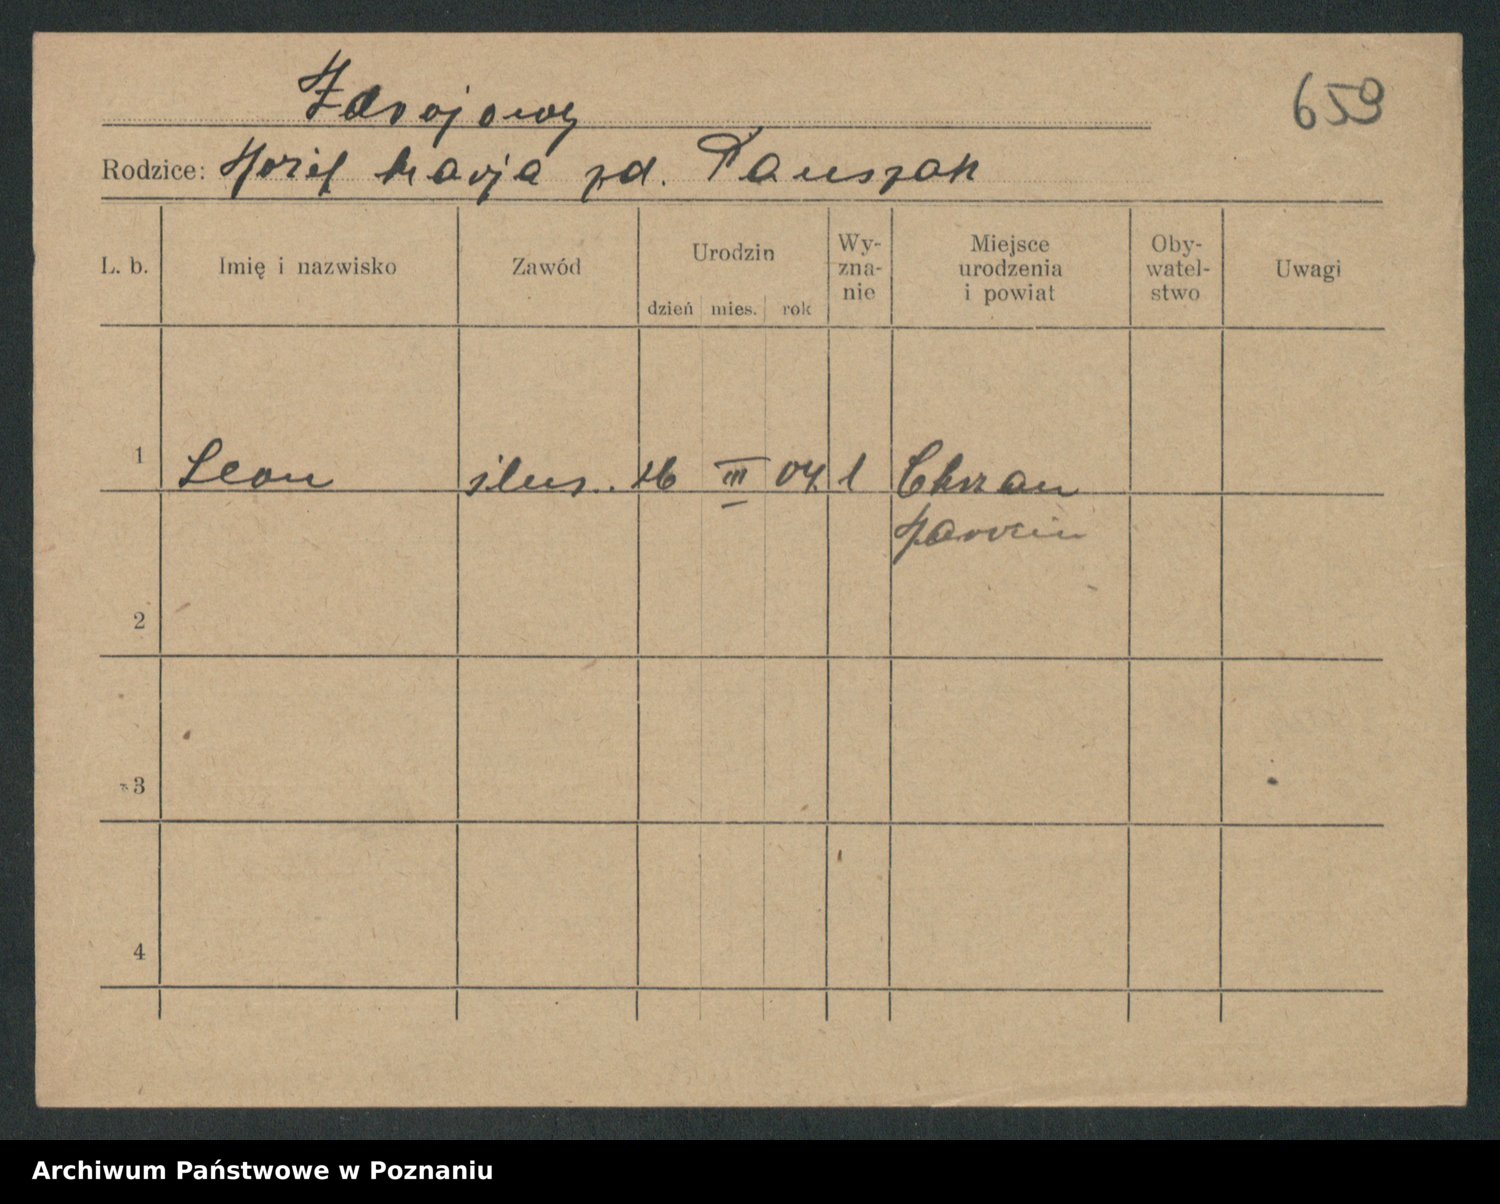 Zdrojowy
659
Rodzice: Józef Marja zd. Pauszak
L. b. Imię i nazwisko Zawód Urodzin dzień mies. rok Wy-zna-nie Miejsce urodzenia i powiat Oby-watel-stwo Uwagi
1 Leon ślus. 16 III 07 Chrzan
Jarocin
2
3
4
Archiwum Państwowe w Poznaniu